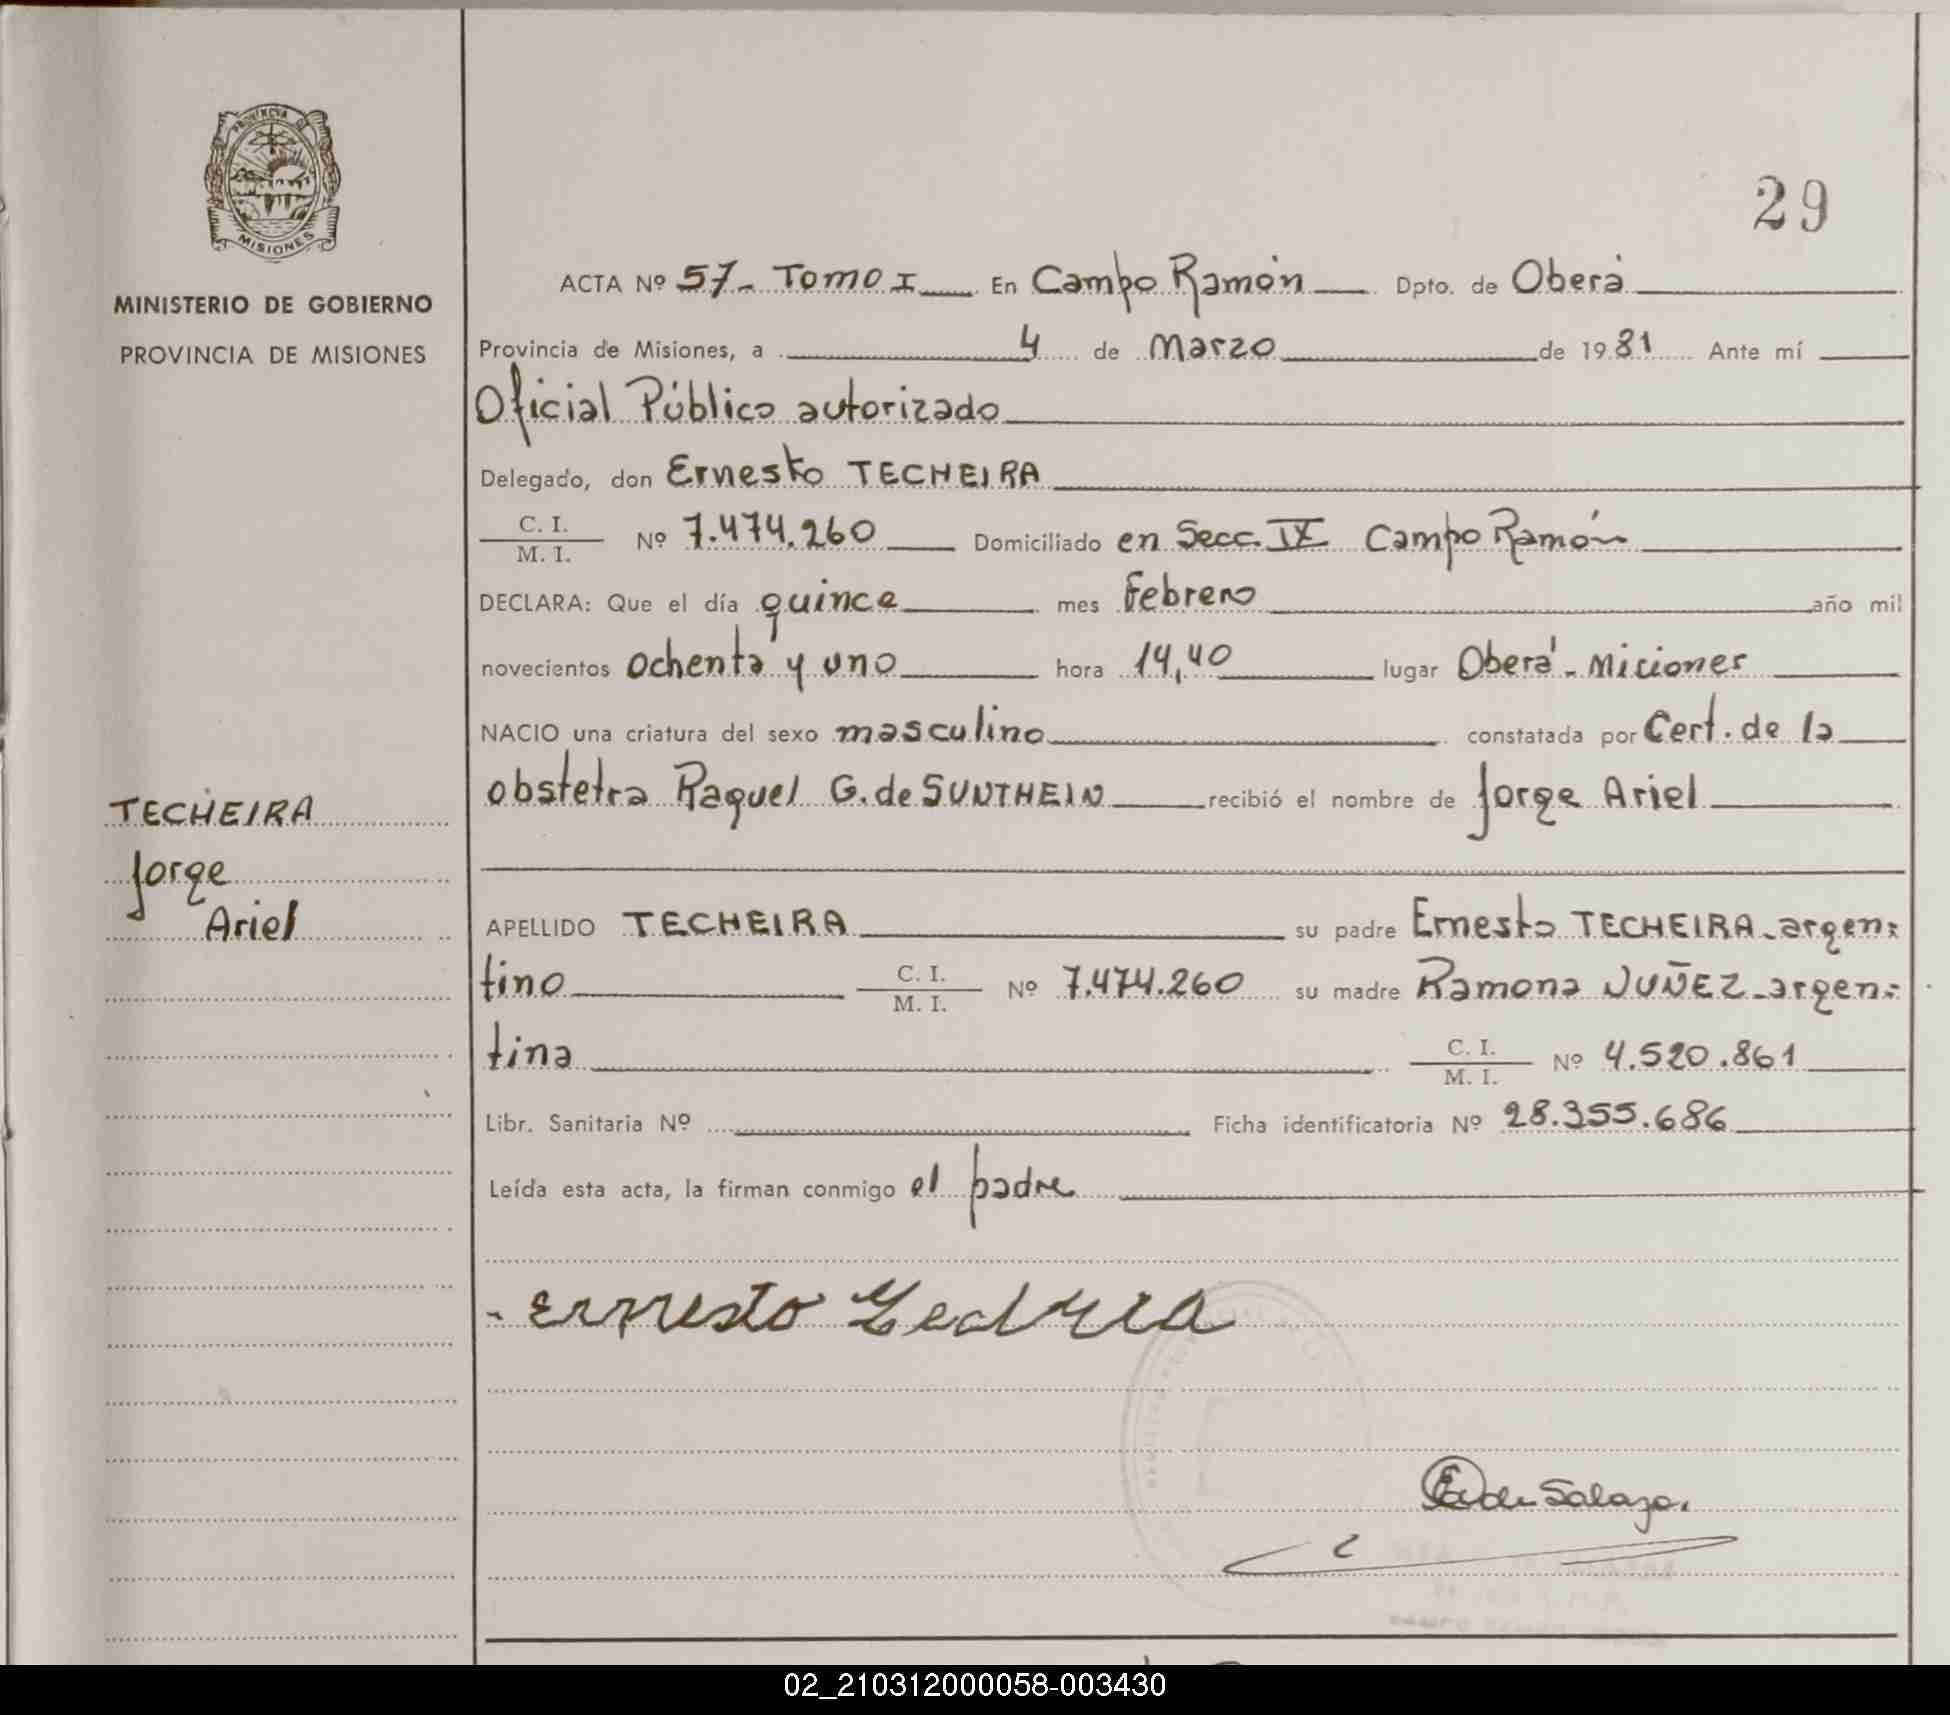 PROVINCIA DE
MISIONES
MINISTERIO DE GOBIERNO
PROVINCIA DE MISIONES
TECHEIRA
Jorge
Ariel
29
ACTA Nº 57 - Tomo I En Campo Ramón Dpto. de Oberá
Provincia de Misiones, a 4 de Marzo de 1981 Ante mí
Oficial Público autorizado
Delegado, don Ernesto TECHEIRA
C. I.
M. I. Nº 7.474.260 Domiciliado en Secc. IX Campo Ramón
DECLARA: Que el día quince mes Febrero año mil
novecientos ochenta y uno hora 14,40 lugar Oberá - Misiones
NACIO una criatura del sexo masculino constatada por Cert. de la
obstetra Raquel G. de SUNTHEIN recibió el nombre de Jorge Ariel
APELLIDO TECHEIRA su padre Ernesto TECHEIRA - argen=
tino C. I. M. I. Nº 7.474.260 su madre Ramona NUÑEZ - argen=
tina C. I. M. I. Nº 4.520.861
Libr. Sanitaria Nº Ficha identificatoria Nº 28.355.686
Leída esta acta, la firman conmigo el padre
- Ernesto Techeira
de Salazar
02_210312000058-003430